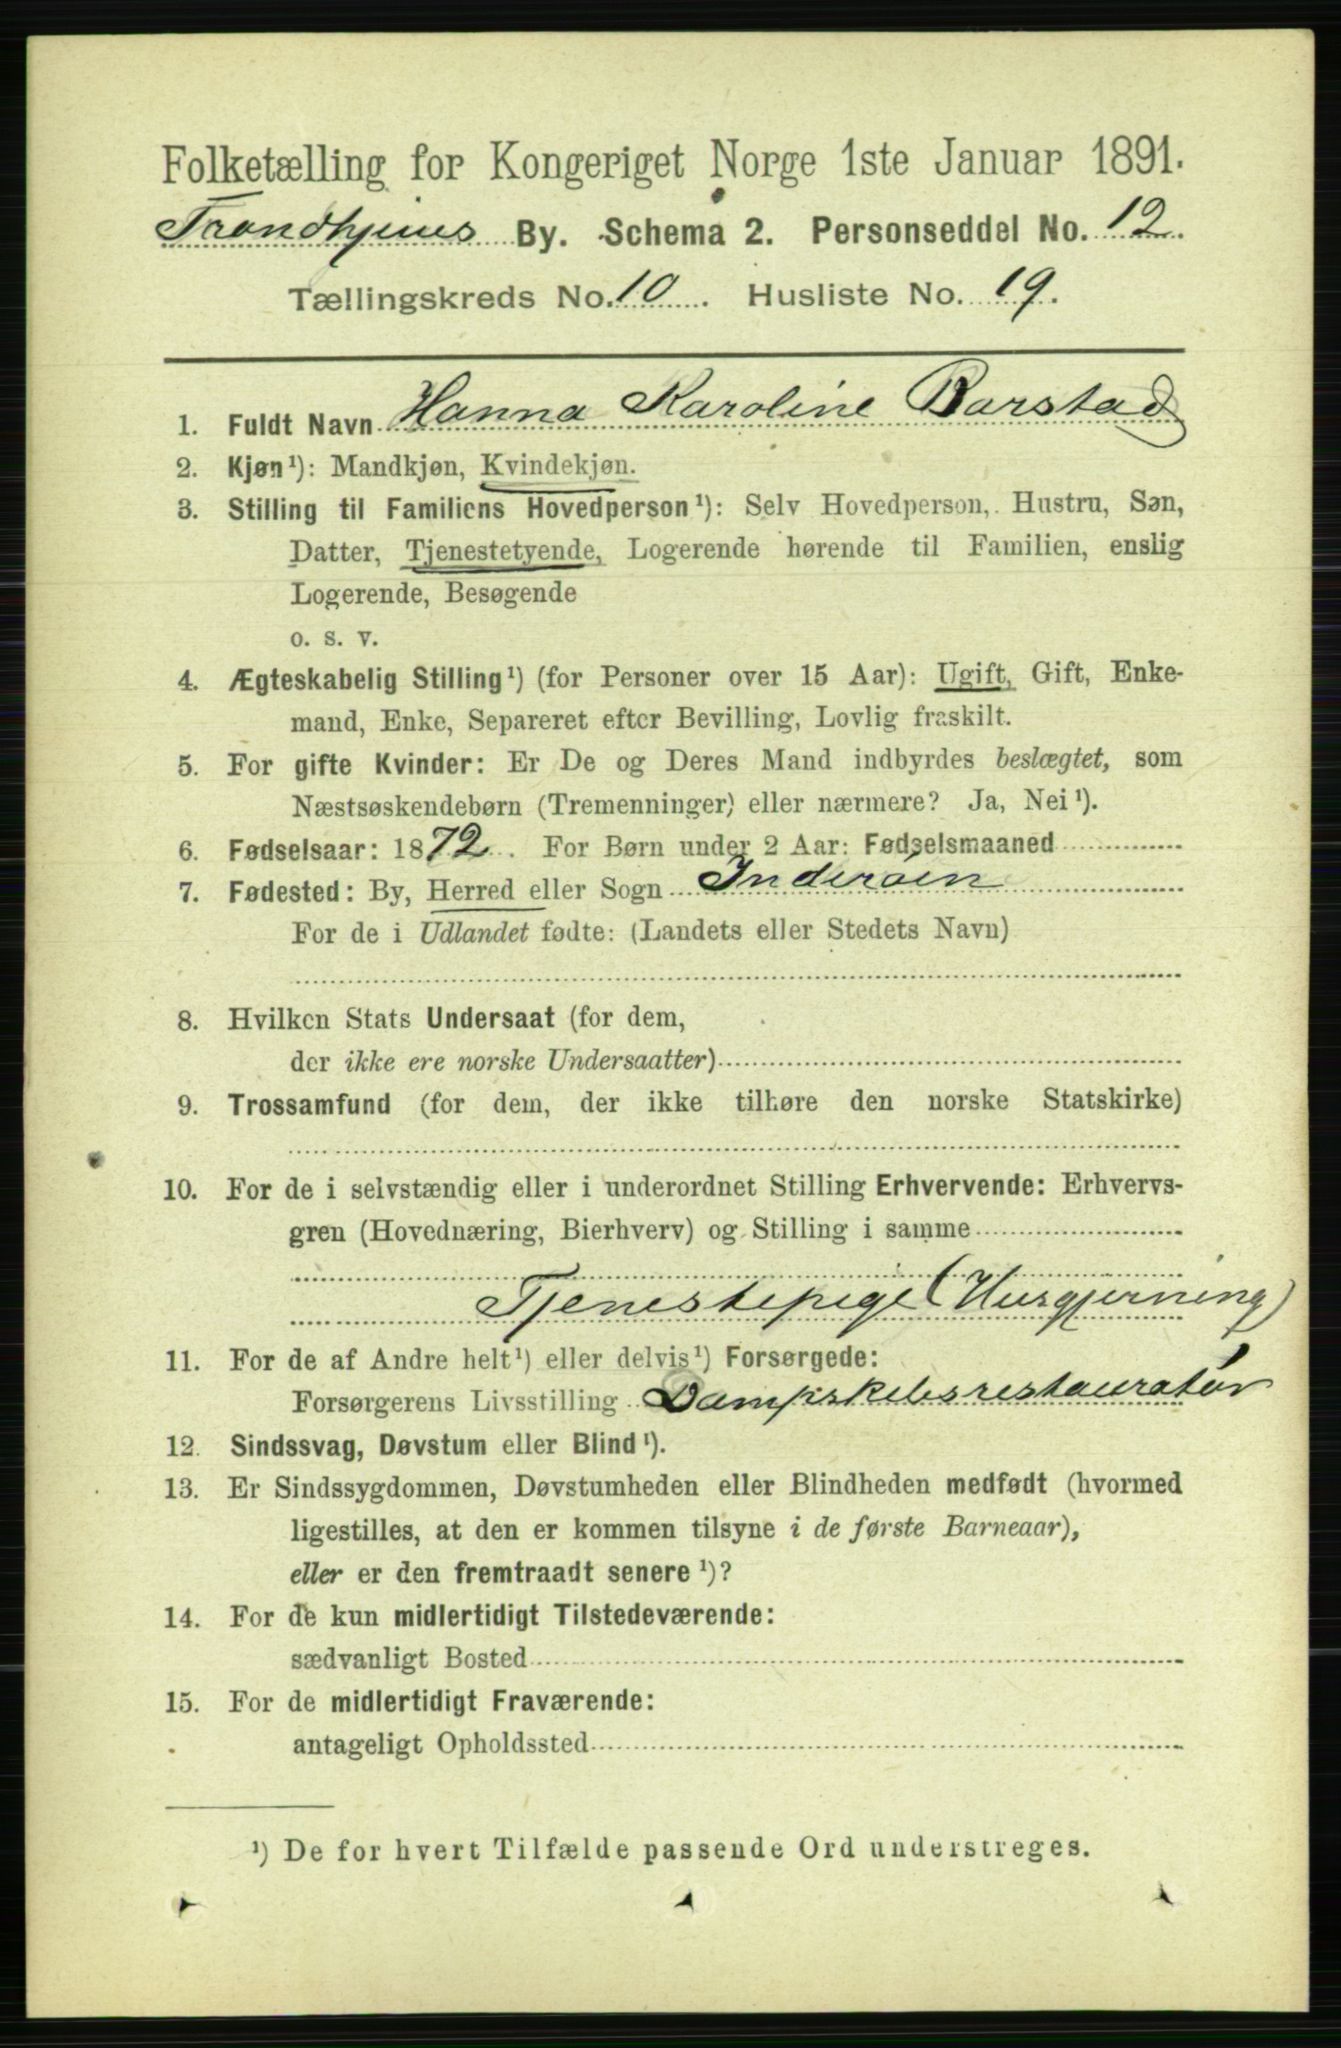 Folketælling for Kongeriget Norge 1ste Januar 1891.
Trondhjems By. Schema 2. Personseddel No. 12.
Tællingskreds No. 10. Husliste No. 19.
1. Fuldt Navn Hanna Karoline Barstad
2. Kjøn¹): Mandkjøn, Kvindekjøn.
3. Stilling til Familiens Hovedperson¹): Selv Hovedperson, Hustru, Søn,
Datter, Tjenestetyende, Logerende hørende til Familien, enslig
Logerende, Besøgende
o. s. v.
4. Ægteskabelig Stilling¹) (for Personer over 15 Aar): Ugift, Gift, Enke-
mand, Enke, Separeret efter Bevilling, Lovlig fraskilt.
5. For gifte Kvinder: Er De og Deres Mand indbyrdes beslægtet, som
Næstsøskendebørn (Tremenninger) eller nærmere? Ja, Nei¹).
6. Fødselsaar: 1872. For Børn under 2 Aar: Fødselsmaaned
7. Fødested: By, Herred eller Sogn Inderøen
For de i Udlandet fødte: (Landets eller Stedets Navn)
8. Hvilken Stats Undersaat (for dem,
der ikke ere norske Undersaatter)
9. Trossamfund (for dem, der ikke tilhøre den norske Statskirke)
10. For de i selvstændig eller i underordnet Stilling Erhvervende: Erhvervs-
gren (Hovednæring, Bierhverv) og Stilling i samme
Tjenestepige (Husgjerning)
11. For de af Andre helt¹) eller delvis¹) Forsørgede:
Forsørgerens Livsstilling Dampskibsrestauratør
12. Sindssvag, Døvstum eller Blind¹).
13. Er Sindssygdommen, Døvstumheden eller Blindheden medfødt (hvormed
ligestilles, at den er kommen tilsyne i de første Barneaar),
eller er den fremtraadt senere¹)?
14. For de kun midlertidigt Tilstedeværende:
sædvanligt Bosted
15. For de midlertidigt Fraværende:
antageligt Opholdssted
¹) De for hvert Tilfælde passende Ord understreges.